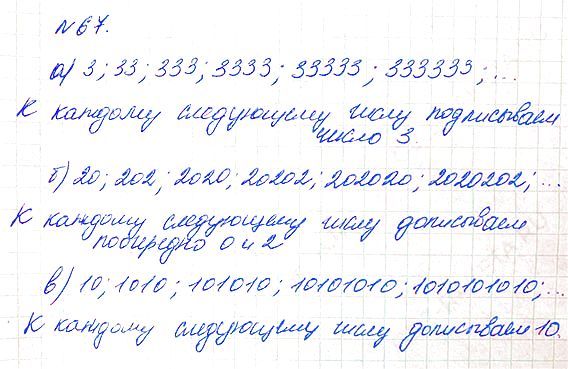 №67.
а) 3; 33; 333; 3333; 33333; 333333; ...
К каждому следующему числу подписываем
число 3.
б) 20; 202; 2020; 20202; 202020; 2020202; ...
К каждому следующему числу дописываем
поочередно 0 и 2
в) 10; 1010; 101010; 10101010; 1010101010; ...
К каждому следующему числу дописываем 10.